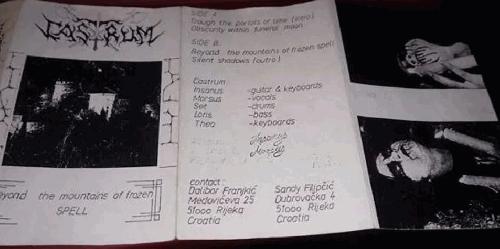 CASTRUM
Beyond the mountains of frozen
SPELL
SIDE A:
Trough the portals of time (intro)
Obscurity within funeral moon
SIDE B:
Beyond the mountains of frozen spell
Silent shadows (outro)
Castrum:
Insanus -guitar & keyboards
Morsus -vocals
Set -drums
Loris -bass
Theo -keyboards
Insanus
Morsus
contact:
Dalibor Franjkić
Medovićeva 25
51000 Rijeka
Croatia
Sandy Filipčić
Dubrovačka 4
51000 Rijeka
Croatia